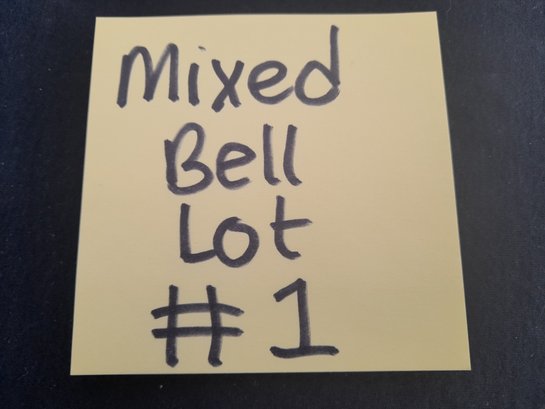 Mixed
Bell
Lot
# 1